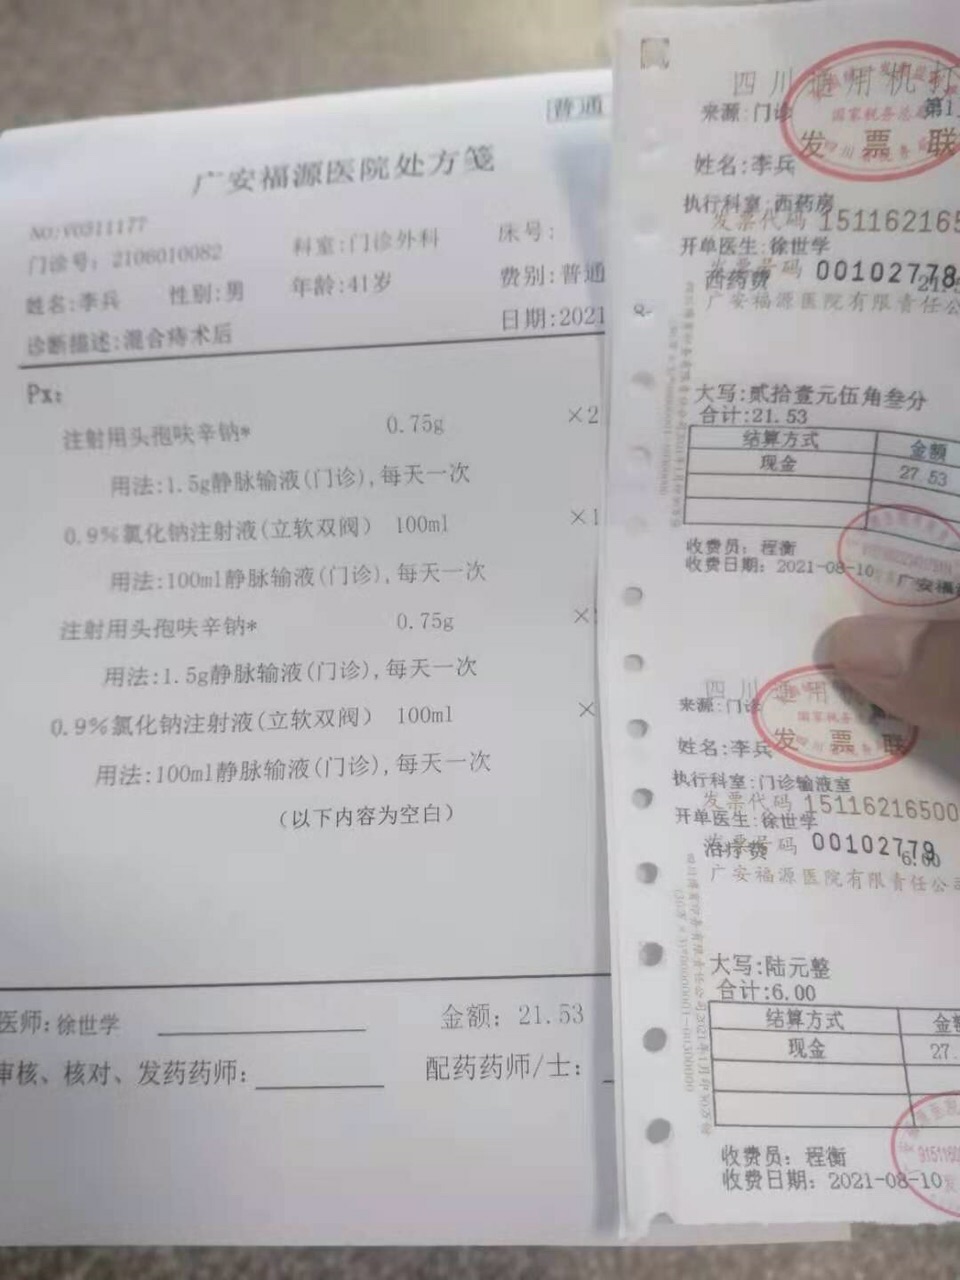 普通
广安福源医院处方笺
NO:V0311177
门诊号: 2106010082
科室:门诊外科
床号:
姓名:李兵 性别:男 年龄:41岁
费别:普通
诊断描述:混合痔术后
日期:2021
Px:
注射用头孢呋辛钠* 0.75g ×2
用法:1.5g静脉输液(门诊),每天一次
0.9%氯化钠注射液(立软双阀) 100ml ×1
用法:100ml静脉输液(门诊),每天一次
注射用头孢呋辛钠* 0.75g ×
用法:1.5g静脉输液(门诊),每天一次
0.9%氯化钠注射液(立软双阀) 100ml ×
用法:100ml静脉输液(门诊),每天一次
(以下内容为空白)
医师:徐世学
金额: 21.53
审核、核对、发药药师:
配药药师/士:
四川通用机打
来源:门诊
国家税务总局
发票联
姓名:李兵
执行科室:西药房
发票代码 151162165
开单医生:徐世学
发票号码 00102778
西药费
广安福源医院有限责任公
大写:贰拾壹元伍角叁分
合计:21.53
结算方式 金额
现金 27.53
收费员: 程衡
收费日期: 2021-08-10
广安福
四川通用
来源:门诊
国家税务总
发票联
姓名:李兵
执行科室:门诊输液室
发票代码 15116216500
开单医生:徐世学
发票号码 00102779
治疗费 6.00
广安福源医院有限责任公司
大写:陆元整
合计:6.00
结算方式 金额
现金 27.
收费员: 程衡
收费日期: 2021-08-10